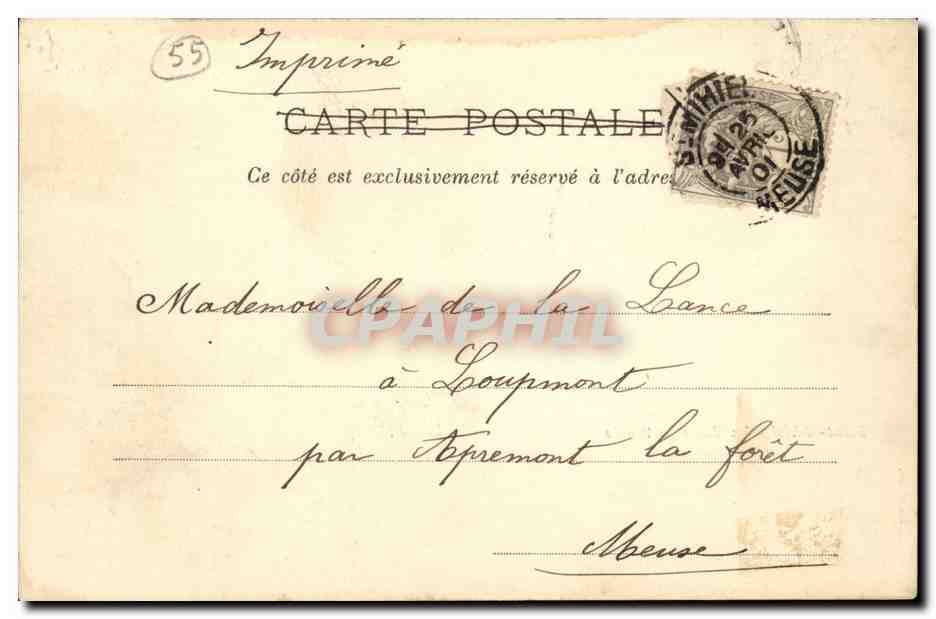 55
Imprimé
CARTE POSTALE
Ce côté est exclusivement réservé à l'adres
ST MIHIEL
25
AVRIL
01
MEUSE
Mademoiselle de la Lance
CPAPHIL
à Loupmont
par Apremont la forêt
Meuse